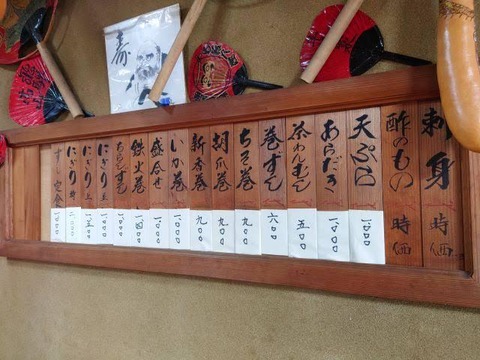 刺身 時価
酢のもの 時価
天ぷら 一、〇〇〇
あらだき 一、〇〇〇
茶わんむし 五〇〇
巻ずし 六〇〇
ちそ巻 九〇〇
胡瓜巻 九〇〇
新香巻 九〇〇
いか巻 一、〇〇〇
盛合せ 一、〇〇〇
鉄火巻 一、四〇〇
ちらしずし
にぎり 並
にぎり 上 一、五〇〇
にぎり
すし定食
寿